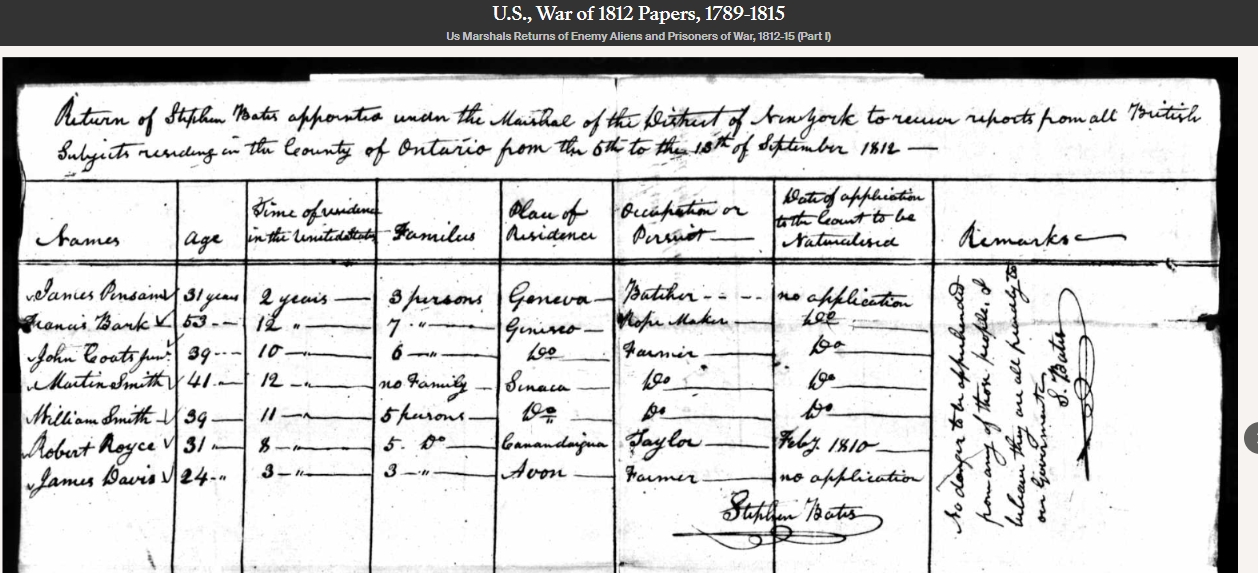 U.S., War of 1812 Papers, 1789-1815
Us Marshals Returns of Enemy Aliens and Prisoners of War, 1812-15 (Part I)
Return of Stephen Bates appointed under the Marshal of the District of New York to receive reports from all British
Subjects residing in the County of Ontario from the 5th to the 13th of September 1812 —
Names | Age | Time of residence in the United States | Families | Place of Residence | Occupation or Persuit | Date of application to the Court to be Naturalised | Remarks
James Pinsam ✓ | 31 years | 2 years | 3 persons | Geneva | Butcher | no application
Francis Bark ✓ | 53 | 12 " | 7 " | Genisco | Rope Maker | Do
John Coats junr | 39 | 10 " | 6 " | Do | Farmer | Do
Martin Smith ✓ | 41 | 12 " | no Family | Sinaca | Do | Do
William Smith ✓ | 39 | 11 " | 5 persons | Do | Do | Do
Robert Royce ✓ | 31 | 8 " | 5 Do | Canandaigua | Taylor | Feby. 1810
James Davis ✓ | 24 | 3 " | 3 " | Avon | Farmer | no application
Stephen Bates
No danger to be apprehended
from any of those people. I
believe they are all friendly to
our Government
S. Bates